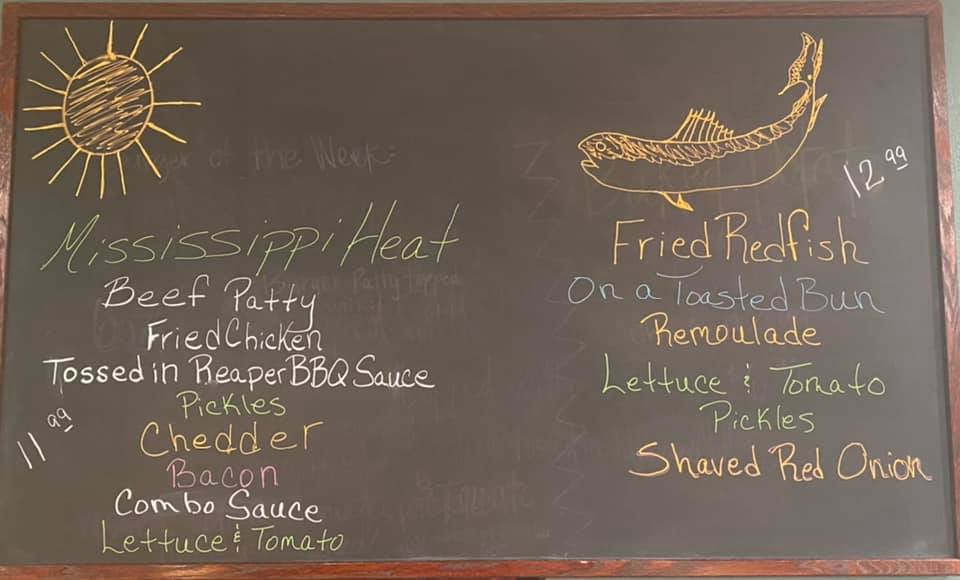 Mississippi Heat
Beef Patty
Fried Chicken
Tossed in Reaper BBQ Sauce
Pickles
Chedder
Bacon
Combo Sauce
Lettuce & Tomato
11 99
12 99
Fried Redfish
On a Toasted Bun
Remoulade
Lettuce & Tomato
Pickles
Shaved Red Onion
of the Week: